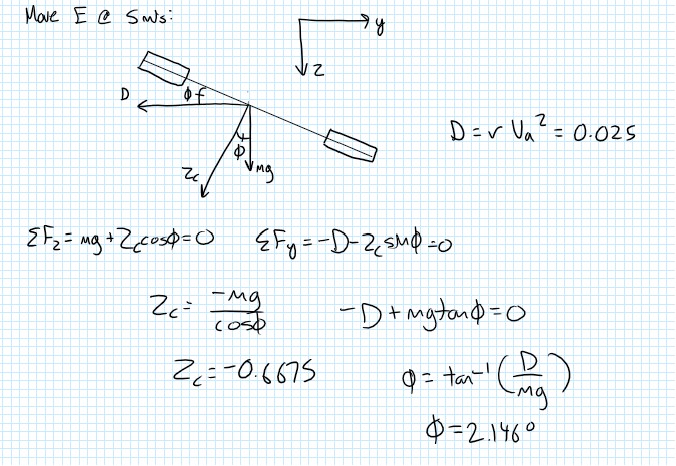 Move E @ 5 m/s:
y
z
D
ϕf
ϕ
Zc
mg
D = ν Va² = 0.025
ΣFz = mg + Zc cosϕ = 0    ΣFy = -D - Zc sinϕ = 0
Zc = -mg / cosϕ    -D + mg tanϕ = 0
Zc = -0.6675    ϕ = tan⁻¹(D / mg)
ϕ = 2.146°